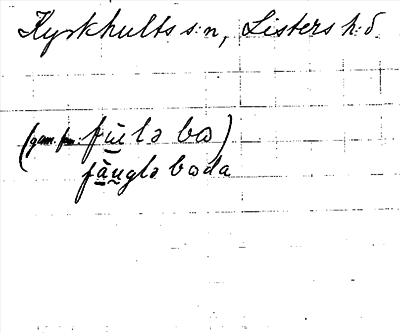 Kyrkhults s:n, Listers h:d
(gam. fm. fùilə bɷ)
fàuglə bɷda